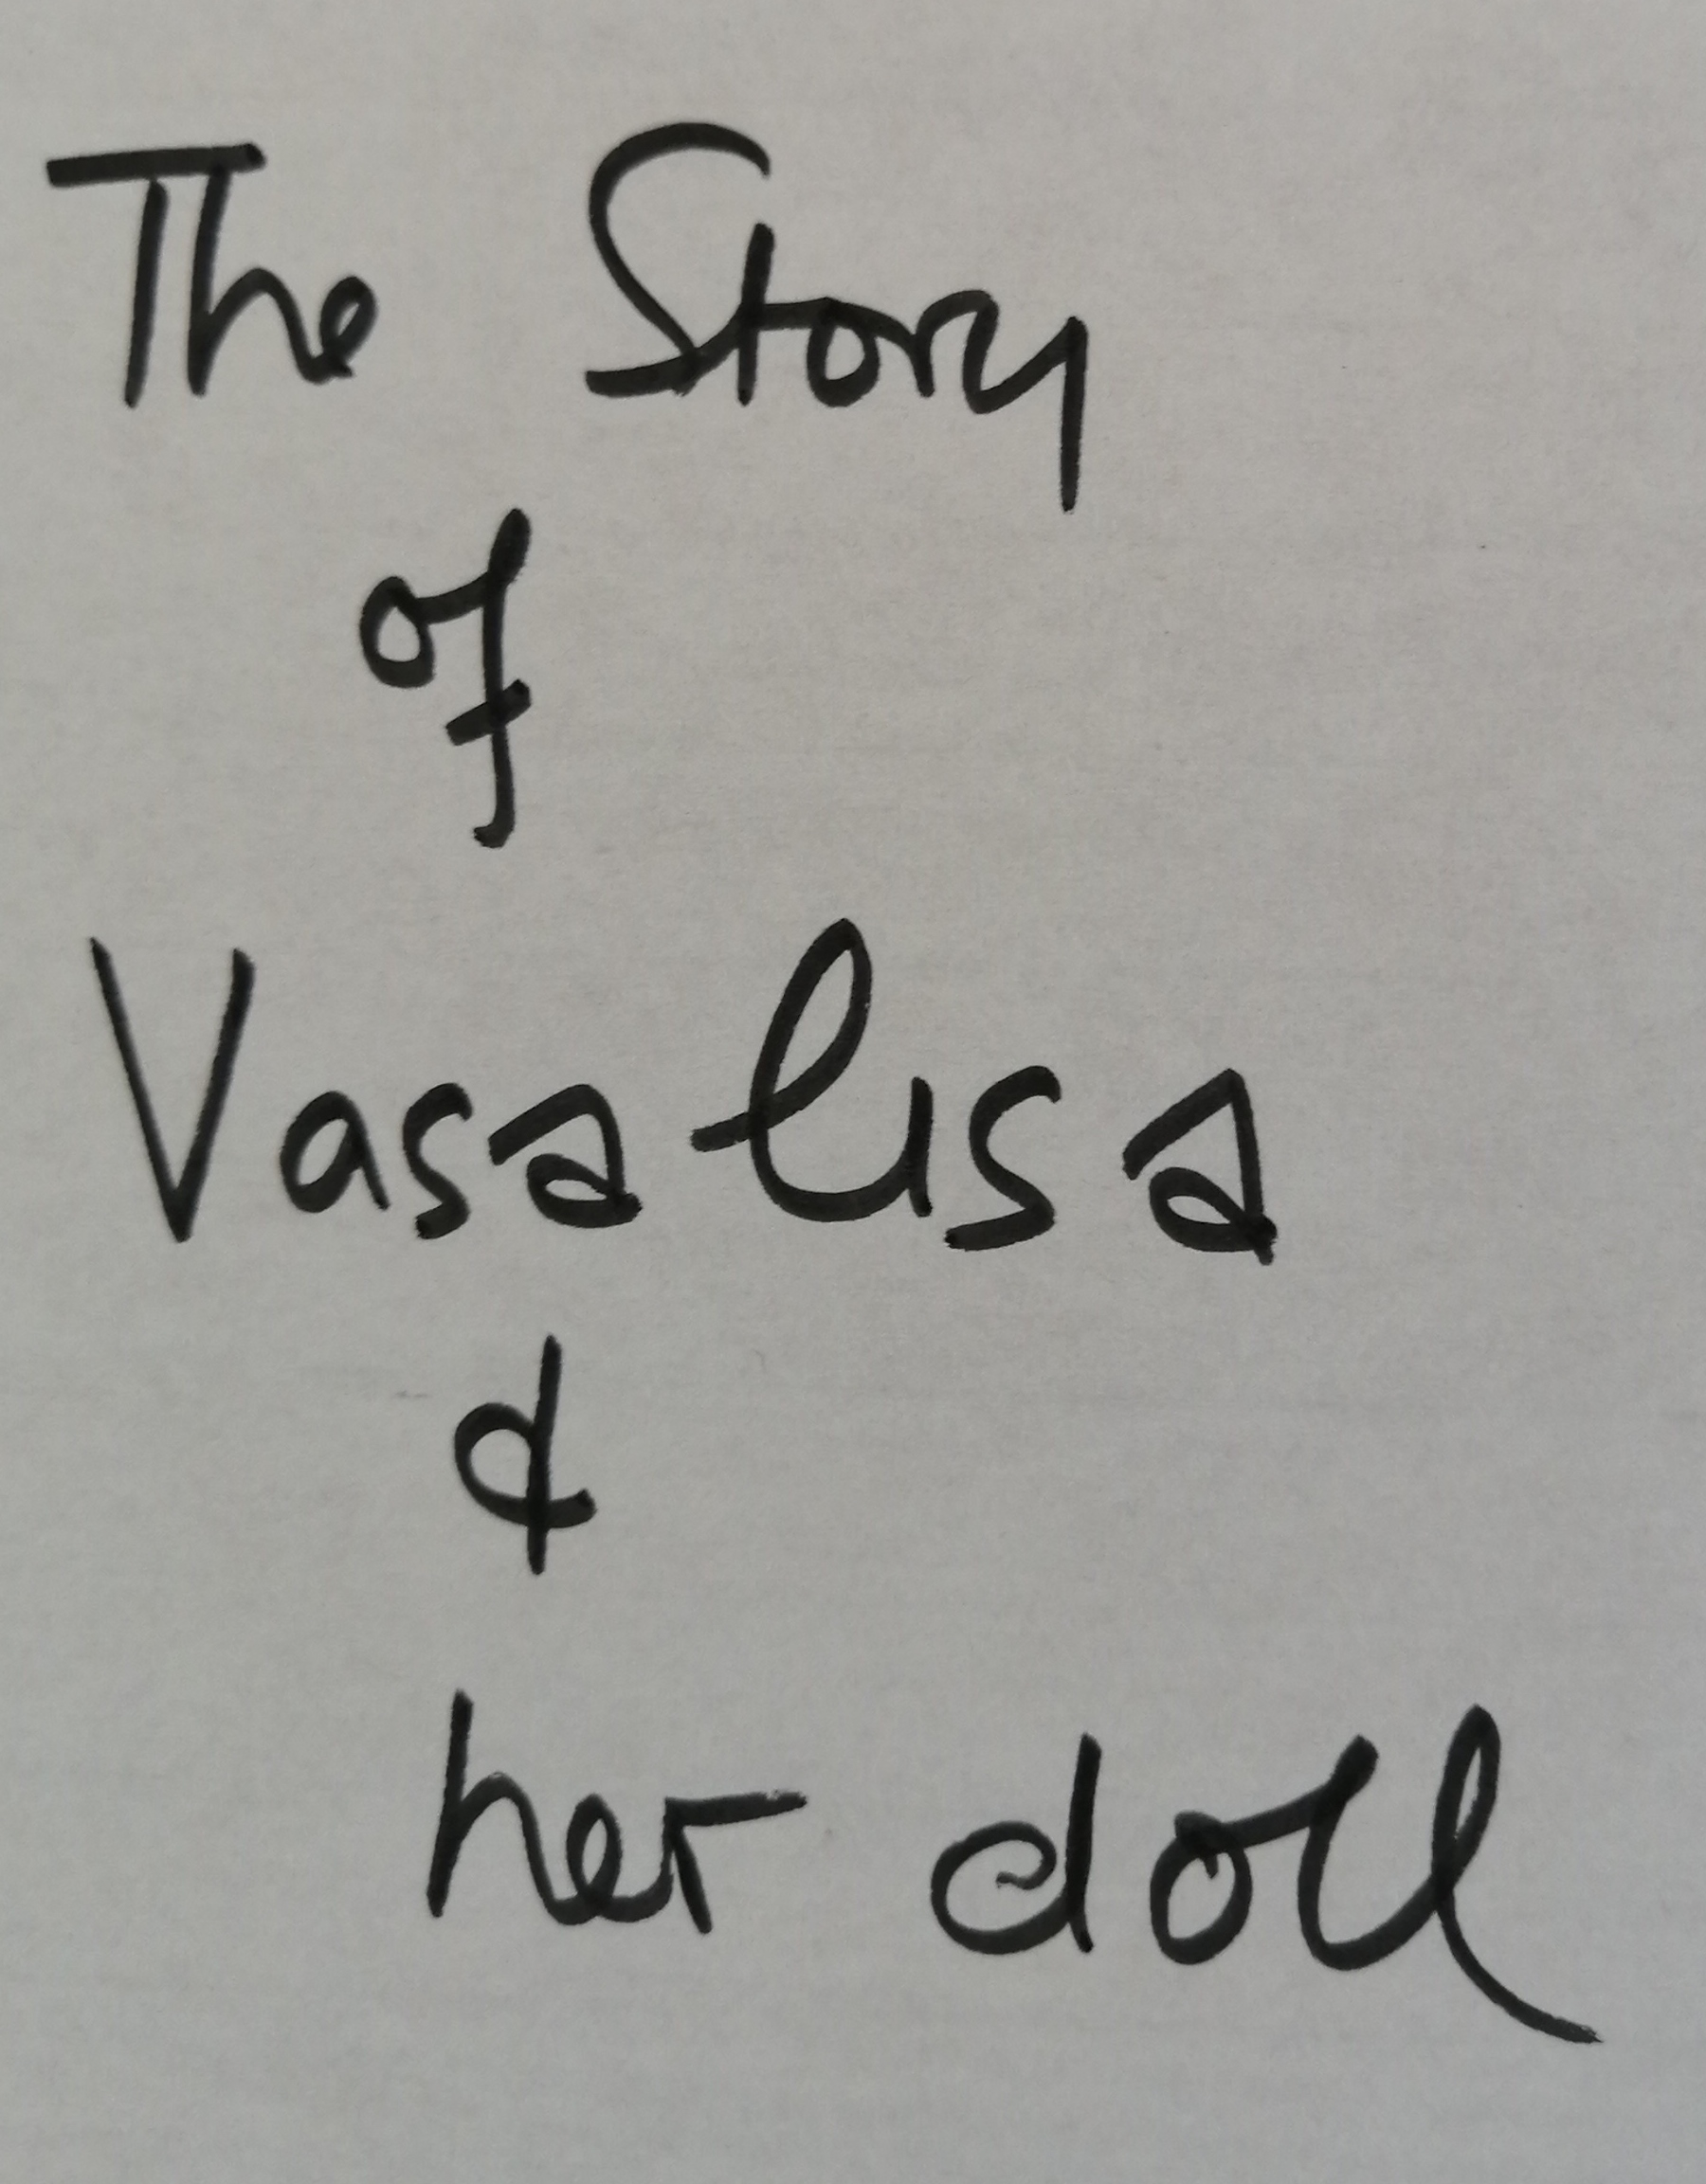 The Story
of
Vasalisa
&
her doll